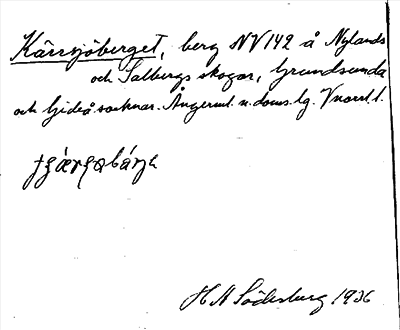 Kärrsjöberget, berg NV 142 å Nylands
och Salbergs skogar, Grundsunda
och Gideå socknar. Ångerml. n. doms.lg. Vnorrl. l.
H N Söderberg 1936